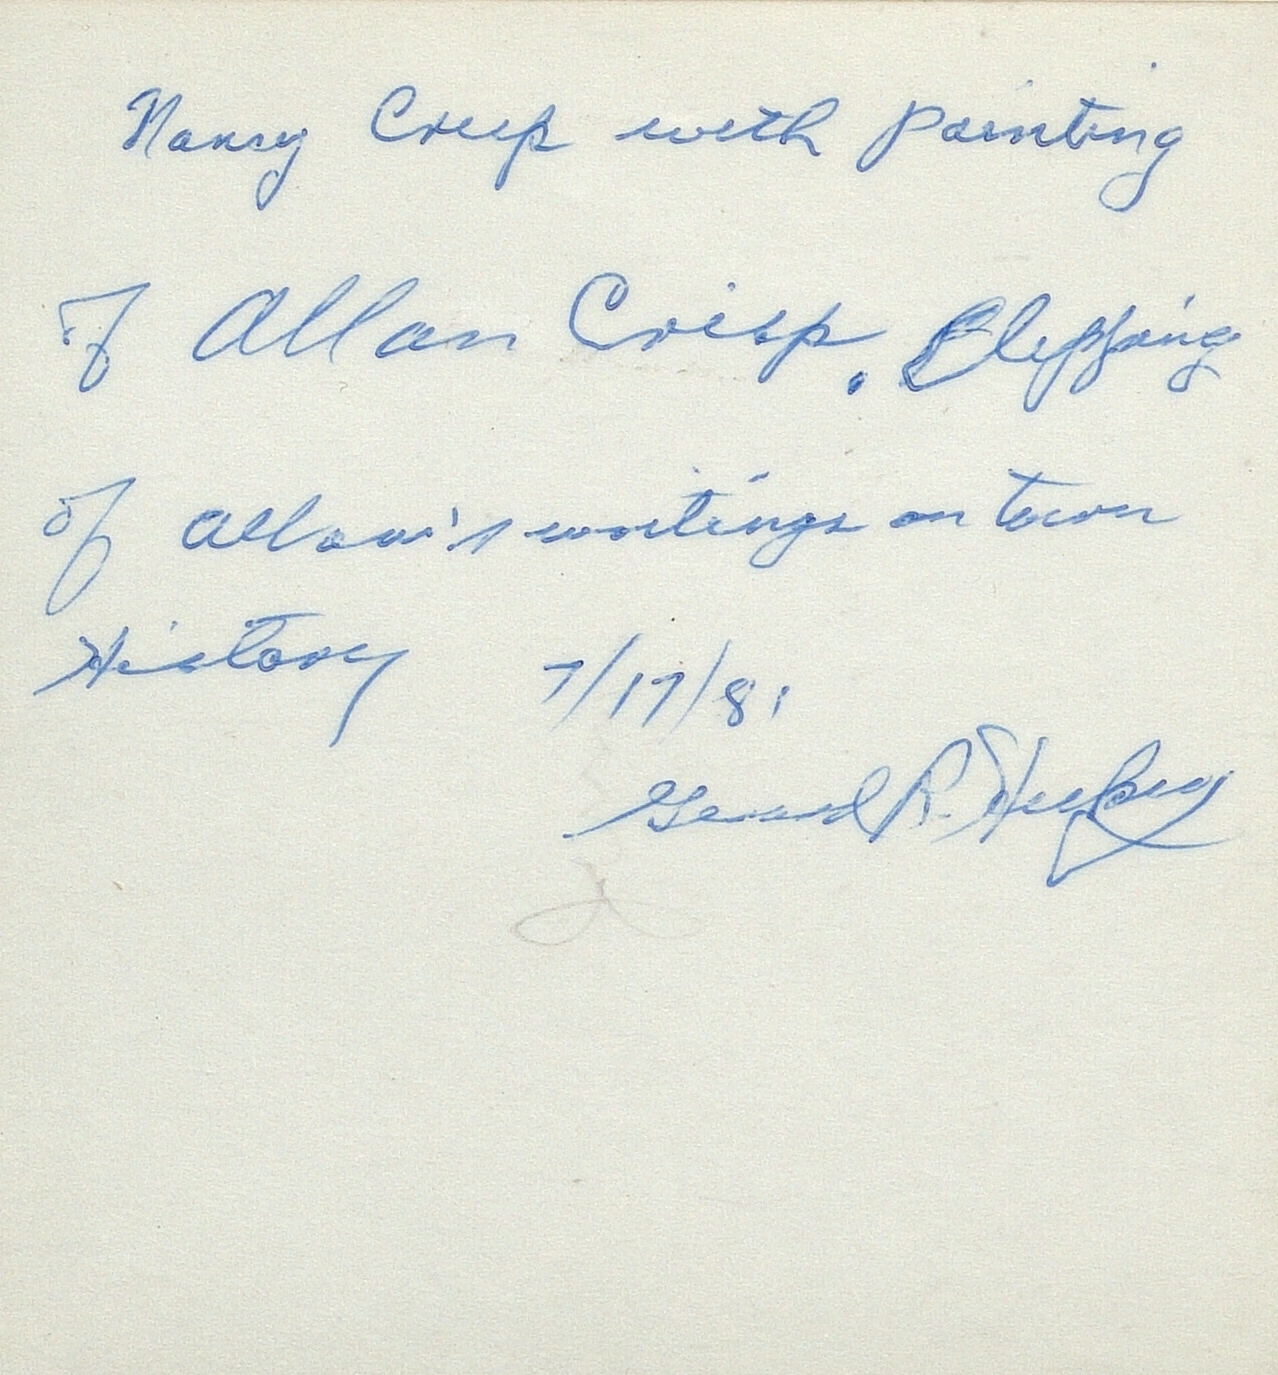 Nancy Crisp with painting
of Allan Crisp. Blessing
of Allan's writings on town
History 7/17/81
R.